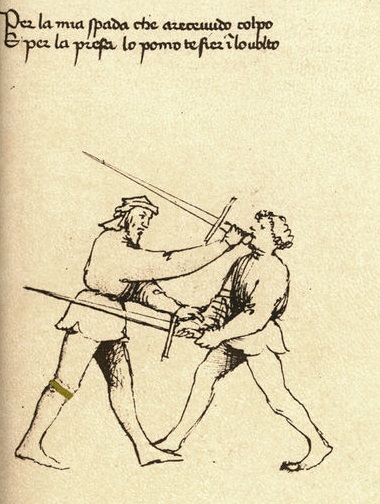 Per la mia spada che a recevudo colpo
E per la presa lo pomo te fier in lo volto